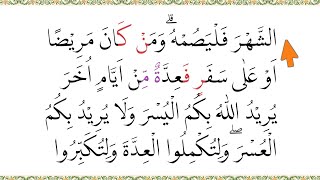 الشَّهْرَ فَلْيَصُمْهُ ۗ وَمَنْ كَانَ مَرِيْضًا
اَوْ عَلٰى سَفَرٍ فَعِدَّةٌ مِّنْ اَيَّامٍ اُخَرَ
يُرِيْدُ اللّٰهُ بِكُمُ الْيُسْرَ وَلَا يُرِيْدُ بِكُمُ
الْعُسْرَ ۖ وَلِتُكْمِلُوا الْعِدَّةَ وَلِتُكَبِّرُوا